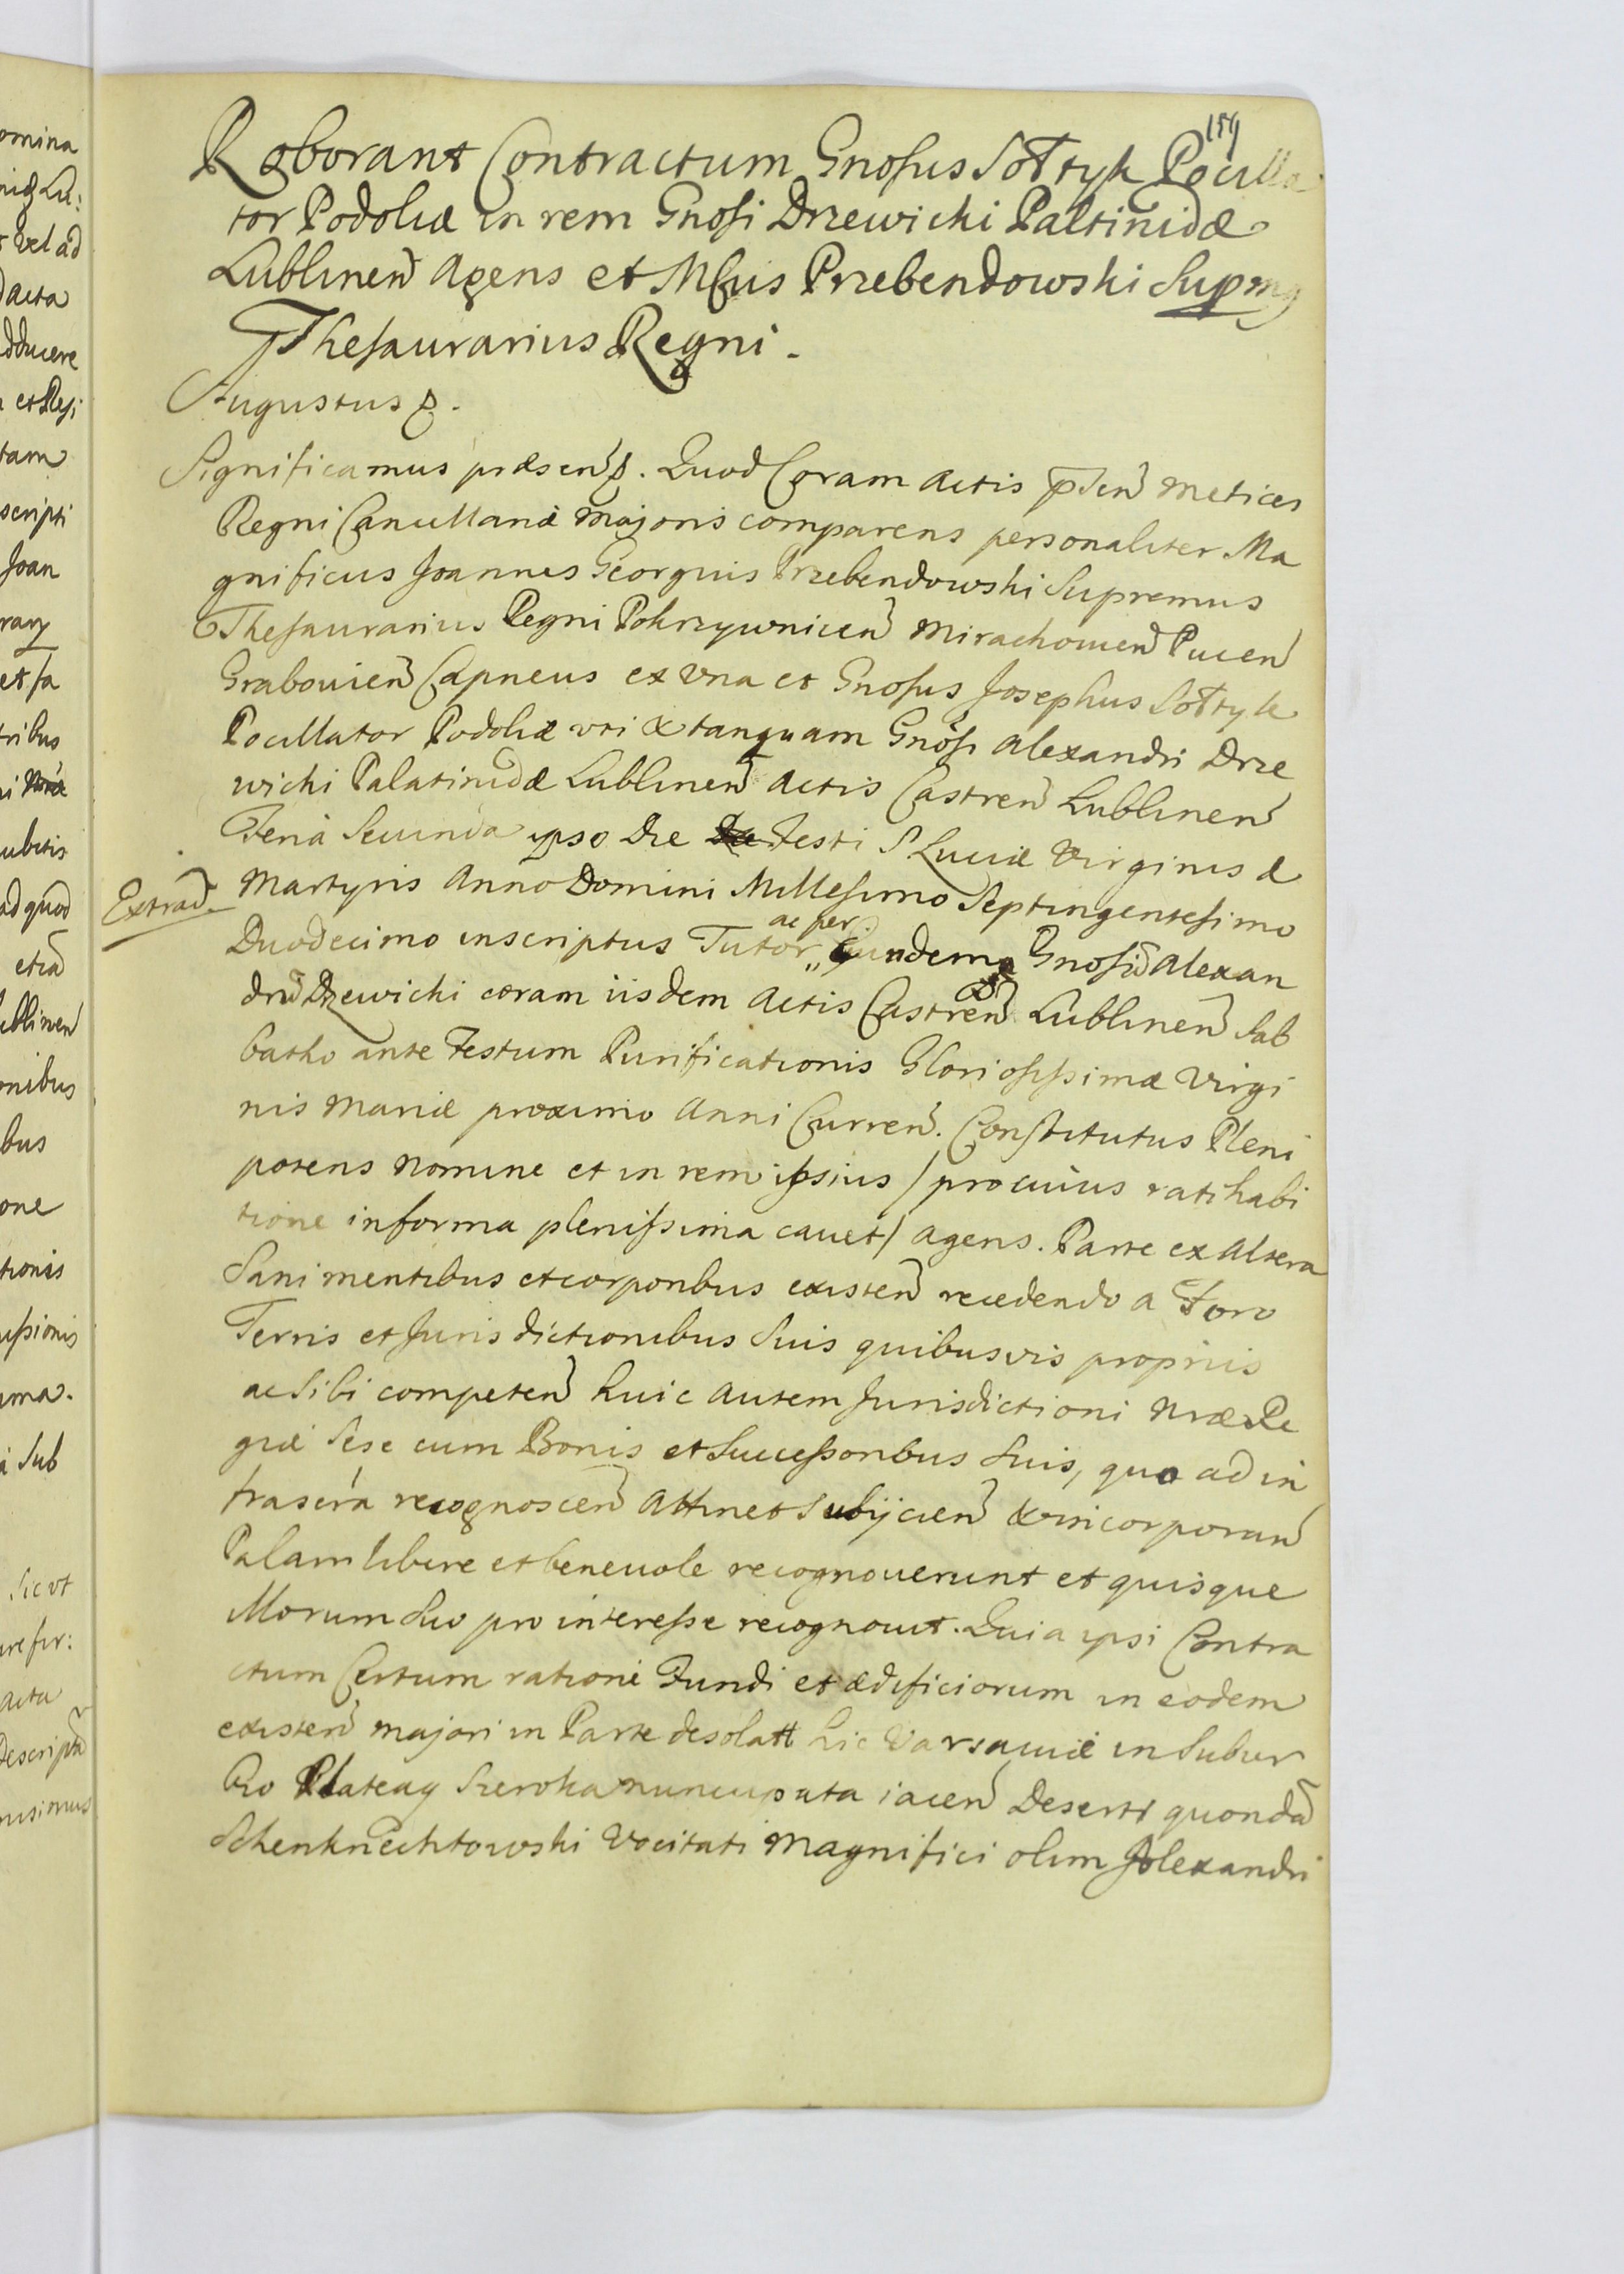 159
Roborant Contractum Gnosus Sołtyk Pocilla
tor Podoliæ in rem Gnosi Drzewicki Paltinidæ
Lublinen Agens et Mfcus Przebendowski Supmq
Thesaurarius Regni.
Augustus &.
Significamus præsen &. Quod Coram Actis pnsen Metices
Regni Cancellariæ Majoris comparens personaliter Ma
gnificus Joannes Georgius Przebendowski Supremus
Thesaurarius Regni Pokrzywnicen Mirachowien Pucen
Grabowien Capneus ex una et Gnosus Josephus Sołtyk
Pocillator Podoliæ uti & tanquam Gnosi Alexandri Drze
wicki Palatinidæ Lublinen Actis Castren Lublinen
Feria Secunda ipso Die Festi S Luciæ Virginis &
Extrad. Martyris Anno Domini Millesimo Septingentesimo
Duodecimo inscriptus Tutor ac per Eundemq Gnosu Alexan
dru Drzewicki coram iisdem Actis Castren Lublinen Sab
batho ante Festum Purificationis Gloriosissimæ Virgi
nis Mariæ proximo Anni Curren. Constitutus Pleni
potens nomine et in rem ipsius / pro cuius ratihabi
tione in forma plenissima cavet / agens. Parte ex Altera
Sani mentibus et corporibus existen recedendo a Foro
Terris et Jurisdictionibus Suis quibusvis propriis
ac Sibi competen huic autem Jurisdictioni Nræ Re
giæ Sese cum Bonis et Successoribus Suis, quo ad in
frascra recognoscen Attinet Subijcien & incorporan
Palam libere et benevole recognoverunt et quisque
Illorum Suo pro interesse recognovit. Quia ipsi Contra
ctum Certum ratione Fundi et ædificiorum in eodem
existen majori in Parte desolatt hic Varsaviæ in Subur
bio Plateaq Szeroka nuncupata iacen Deserti quonda
Schenknechtowski Vocitati Magnifici olim Alexandri